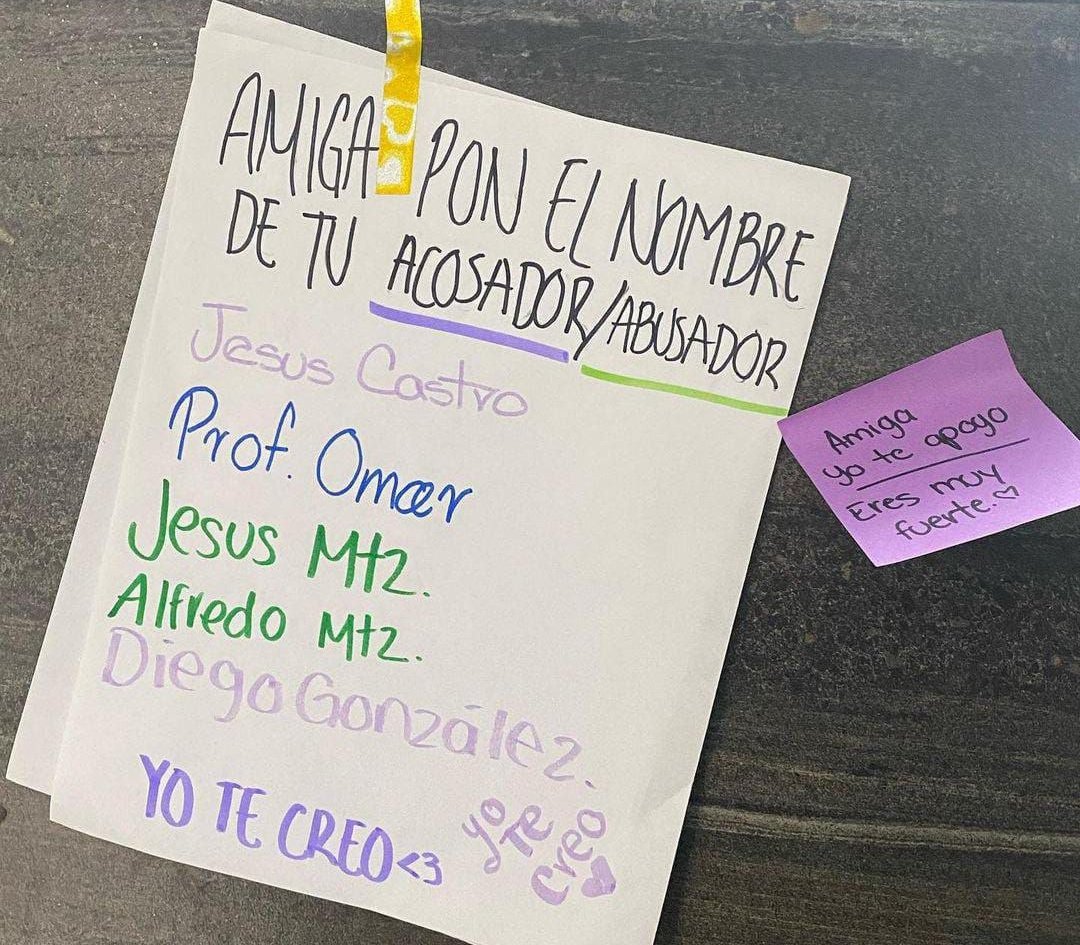 AMIGA PON EL NOMBRE
DE TU ACOSADOR/ABUSADOR
Jesus Castro
Prof. Omar
Jesus Mtz.
Alfredo Mtz.
Diego González.
YO TE CREO<3
yo
Te
creo
Amiga
yo te apoyo
Eres muy
fuerte.♡